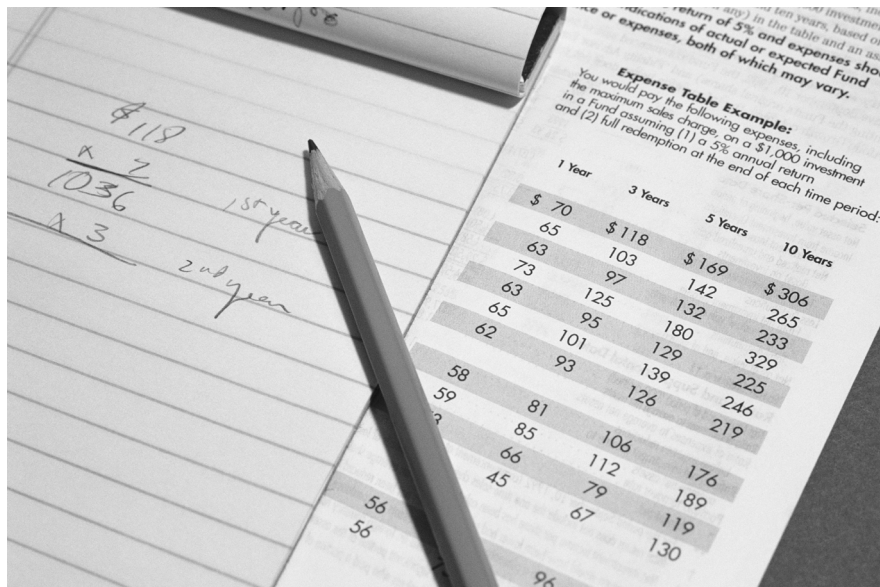 $118
x 7
1036
x 3
1st year
2nd year
any) in the table and an
return of 5% and expenses
indications of actual or expected Fund
or expenses, both of which may vary.
Expense Table Example:
You would pay the following expenses, including
the maximum sales charge, on a $1,000 investment
in a Fund assuming (1) a 5% annual return
and (2) full redemption at the end of each time period:
1 Year 3 Years 5 Years 10 Years
$ 70 $ 118 $ 169 $ 306
65 103 142 265
63 97 132 233
73 125 180 329
63 95 129 225
65 101 139 246
62 93 126 219
58 81 106 176
59 85 112 189
66 79 119
45 67 130
56 96
56